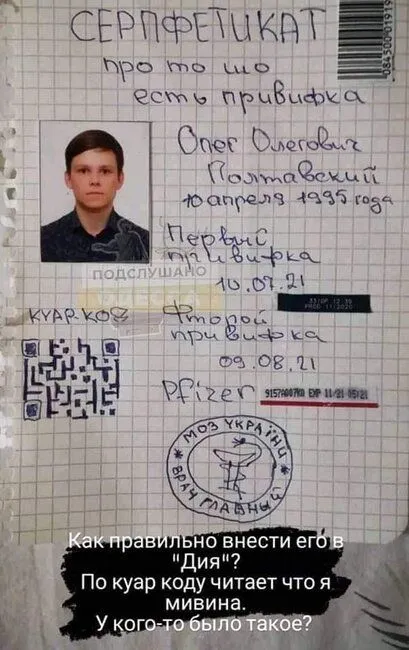 СЕРПФЕТИКАТ
084500019191
про то шо
есть прививка
Олег Олегович
Полтавский
10 апреля 1995 года
Первый
прививка
10.07.21
ПОДСЛУШАНО
КУАР-КОД
Фторой
прививка
09.08.21
Pfizer
9157A007KA EXP 11/21 05|21
МОЗ УКРАЇНИ
ВРАЧ ГЛАВНЫЙ
Как правильно внести его в
"Дия"?
По куар коду читает что я
мивина.
У кого-то было такое?